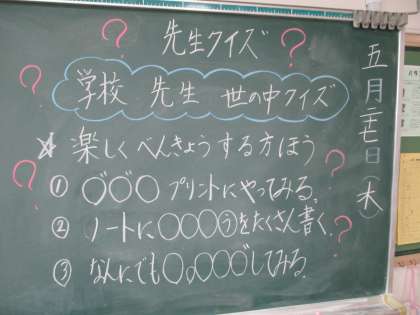 先生クイズ
学校 先生 世の中クイズ
☆ 楽しくべんきょうする方ほう
① ○゛○゛○ プリントにやってみる。
② ノートに○○○うをたくさん書く。
③ なんにでも○。○○○゛してみる。
五月二十七日(木)